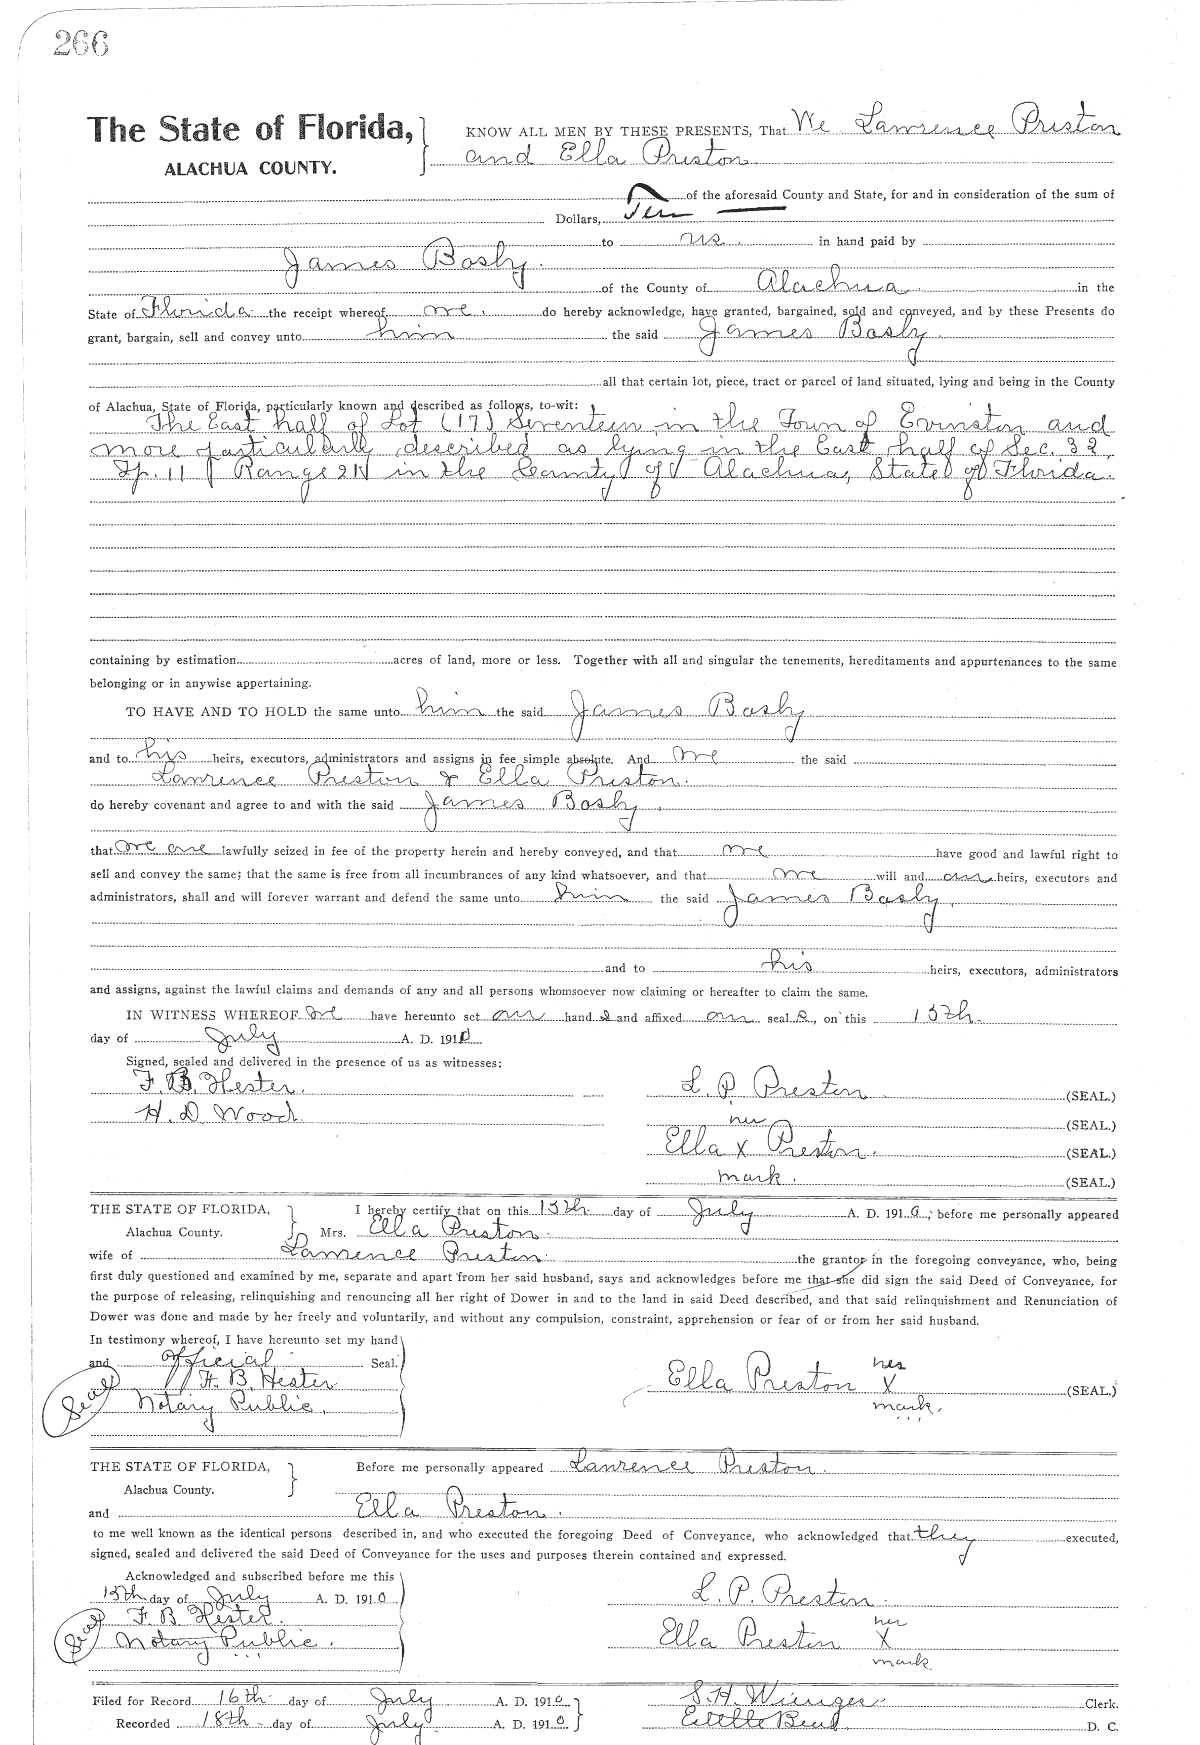 266
The State of Florida,
ALACHUA COUNTY.
KNOW ALL MEN BY THESE PRESENTS, That We Lawrence Preston
and Ella Preston
of the aforesaid County and State, for and in consideration of the sum of
Dollars, Ten
to us. in hand paid by
James Basly.
of the County of Alachua in the
State of Florida the receipt whereof we. do hereby acknowledge, have granted, bargained, sold and conveyed, and by these Presents do
grant, bargain, sell and convey unto him the said James Basly.
all that certain lot, piece, tract or parcel of land situated, lying and being in the County
of Alachua, State of Florida, particularly known and described as follows, to-wit:
The East half of Lot (17) Seventeen in the Town of Evinston and
more particularly described as lying in the East half of Sec. 32,
Tp. 11 Range 21 in the County of Alachua, State of Florida.
containing by estimation acres of land, more or less. Together with all and singular the tenements, hereditaments and appurtenances to the same
belonging or in anywise appertaining.
TO HAVE AND TO HOLD the same unto him the said James Basly
and to his heirs, executors, administrators and assigns in fee simple absolute. And we the said
Lawrence Preston & Ella Preston.
do hereby covenant and agree to and with the said James Basly.
that we are lawfully seized in fee of the property herein and hereby conveyed, and that we have good and lawful right to
sell and convey the same; that the same is free from all incumbrances of any kind whatsoever, and that we will and our heirs, executors and
administrators, shall and will forever warrant and defend the same unto him the said James Basly,
and to his heirs, executors, administrators
and assigns, against the lawful claims and demands of any and all persons whomsoever now claiming or hereafter to claim the same.
IN WITNESS WHEREOF we have hereunto set our hand s and affixed our seal s, on this 15th.
day of July A. D. 1910
Signed, sealed and delivered in the presence of us as witnesses:
F. B. Hester. L. P. Preston (SEAL.)
H. D. Wood. her (SEAL.)
Ella x Preston. (SEAL.)
mark. (SEAL.)
THE STATE OF FLORIDA, I hereby certify that on this 15th day of July A. D. 1910, before me personally appeared
Alachua County. Mrs. Ella Preston.
wife of Lawrence Preston the grantor in the foregoing conveyance, who, being
first duly questioned and examined by me, separate and apart from her said husband, says and acknowledges before me that she did sign the said Deed of Conveyance, for
the purpose of releasing, relinquishing and renouncing all her right of Dower in and to the land in said Deed described, and that said relinquishment and Renunciation of
Dower was done and made by her freely and voluntarily, and without any compulsion, constraint, apprehension or fear of or from her said husband.
In testimony whereof, I have hereunto set my hand
and official Seal. her
(Seal) F. B. Hester Ella Preston X (SEAL.)
Notary Public. mark.
THE STATE OF FLORIDA, Before me personally appeared Lawrence Preston.
Alachua County.
and Ella Preston.
to me well known as the identical persons described in, and who executed the foregoing Deed of Conveyance, who acknowledged that they executed,
signed, sealed and delivered the said Deed of Conveyance for the uses and purposes therein contained and expressed.
Acknowledged and subscribed before me this
15th day of July A. D. 1910 L. P. Preston.
(Seal) F. B. Hester. her
Notary Public. Ella Preston X
mark.
Filed for Record 16th day of July A. D. 1910 S. H. Wienges Clerk.
Recorded 18th day of July A. D. 1910 D. C.